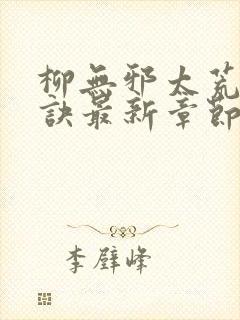 柳無邪太荒
訣最新章節
李璧峰